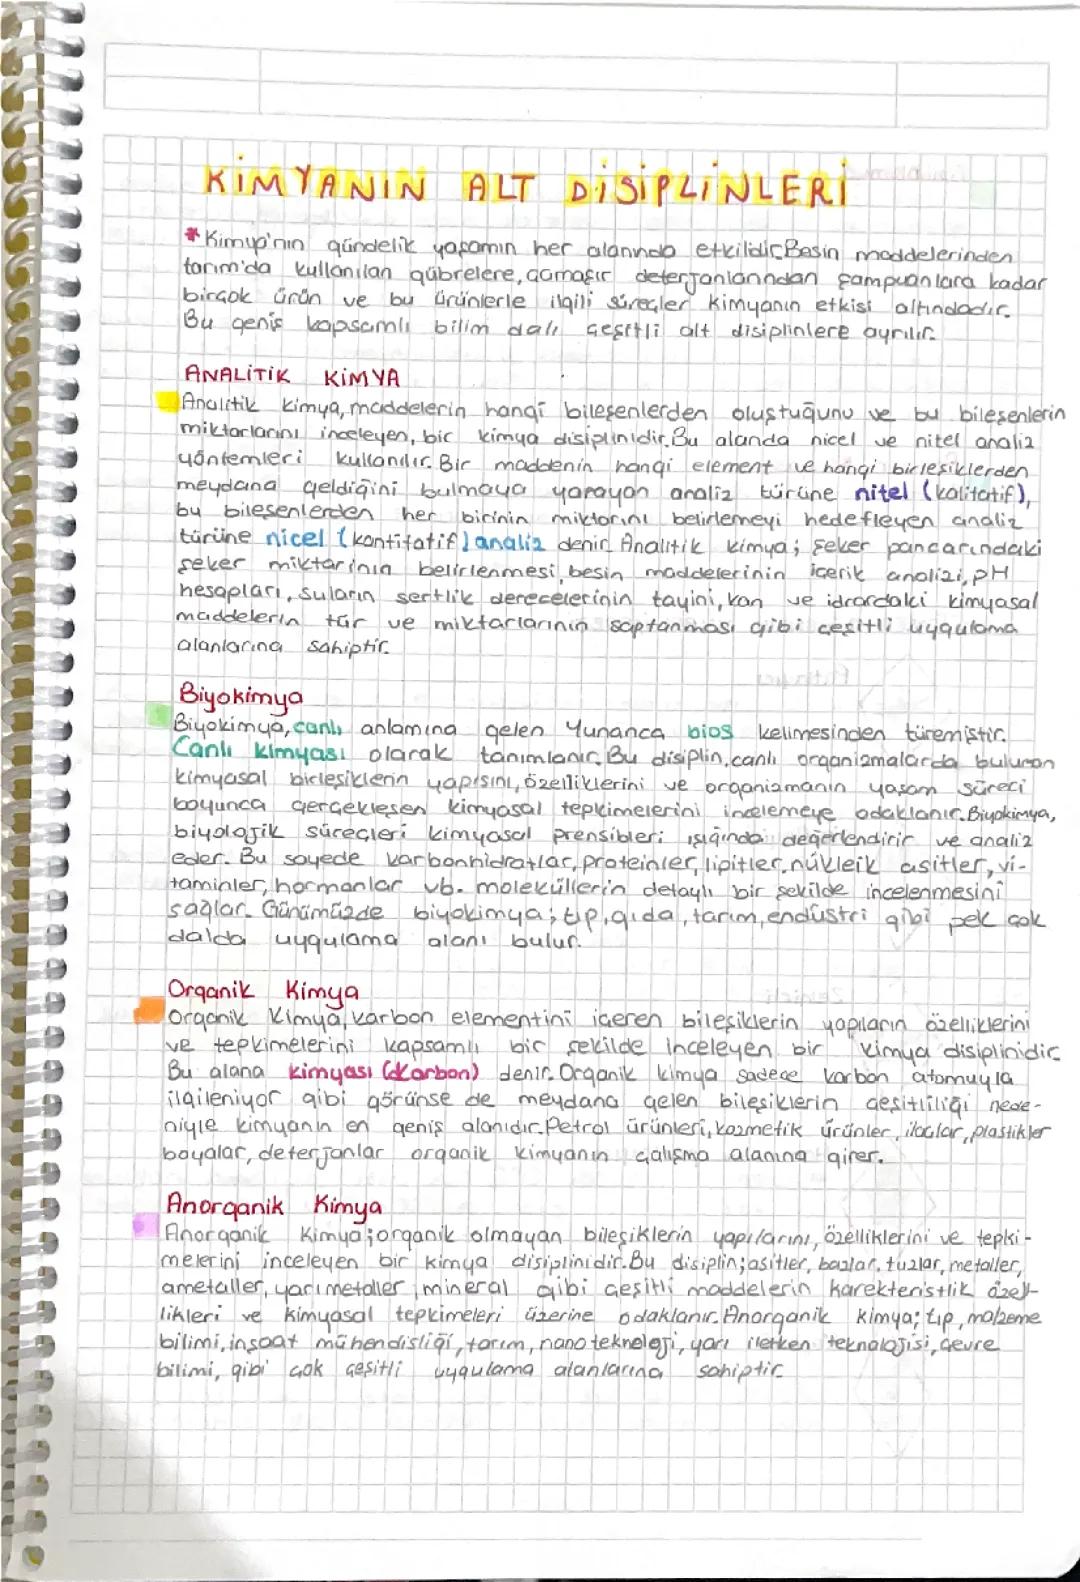 KİMYANIN ALT DİSİPLİNLERİ
* Kimya'nın gündelik yaşamın her alanında etkilidir. Besin maddelerinden
tarım'da kullanılan gübrelere, çamaşır deterjanlarından şampuanlara kadar
birçok ürün ve bu ürünlerle ilgili süreçler kimyanın etkisi altındadır.
Bu geniş kapsamlı bilim dalı çeşitli alt disiplinlere ayrılır.
ANALİTİK KİMYA
Analitik kimya, maddelerin hangi bileşenlerden oluştuğunu ve bu bileşenlerin
miktarlarını inceleyen, bir kimya disiplinidir. Bu alanda nicel ve nitel analiz
yöntemleri kullanılır. Bir maddenin hangi element ve hangi birleşiklerden
meydana geldiğini bulmaya yarayan analiz türüne nitel (kalitatif),
bu bileşenlerden her birinin miktarını belirlemeyi hedefleyen analiz
türüne nicel (kantitatif) analiz denir. Analitik kimya; şeker pancarındaki
şeker miktarının belirlenmesi, besin maddelerinin içerik analizi, pH
hesapları, suların sertlik derecelerinin tayini, kan ve idrardaki kimyasal
maddelerin tür ve miktarlarının saptanması gibi çeşitli uygulama
alanlarına sahiptir.
Biyokimya
Biyokimya, canlı anlamına gelen Yunanca bios kelimesinden türemiştir.
Canlı kimyası olarak tanımlanır. Bu disiplin, canlı organizmalarda bulunan
kimyasal birleşiklerin yapısını, özelliklerini ve organizmanın yaşam süreci
boyunca gerçekleşen kimyasal tepkimelerini incelemeye odaklanır. Biyokimya,
biyolojik süreçleri kimyasal prensibleri ışığında değerlendirir ve analiz
eder. Bu sayede karbonhidratlar, proteinler, lipitler, nükleik asitler, vi-
taminler, hormanlar vb. moleküllerin detaylı bir şekilde incelenmesini
sağlar. Günümüzde biyokimya; tıp, gıda, tarım, endüstri gibi pek çok
dalda uygulama alanı bulur.
Organik Kimya
Organik Kimya, karbon elementini içeren bileşiklerin yapıların özelliklerini
ve tepkimelerini kapsamlı bir şekilde inceleyen bir kimya disiplinidir.
Bu alana kimyası (Karbon) denir. Organik kimya sadece karbon atomuyla
ilgileniyor gibi görünse de meydana gelen bileşiklerin çeşitliliği nede-
niyle kimyanın en geniş alanıdır. Petrol ürünleri, kozmetik ürünler, ilaçlar, plastikler
boyalar, deterjanlar organik kimyanın çalışma alanına girer.
Anorganik Kimya
Anorganik Kimya; organik olmayan bileşiklerin yapılarını, özelliklerini ve tepki-
melerini inceleyen bir kimya disiplinidir. Bu disiplin; asitler, bazlar, tuzlar, metaller,
ametaller, yarı metaller, mineral gibi çeşitli maddelerin karekteristlik özel-
likleri ve kimyasal tepkimeleri üzerine odaklanır. Anorganik kimya; tıp, malzeme
bilimi, inşaat mühendisliği, tarım, nano teknoloji, yarı iletken teknolojisi, çevre
bilimi, gibi çok çeşitli uygulama alanlarına sahiptir.